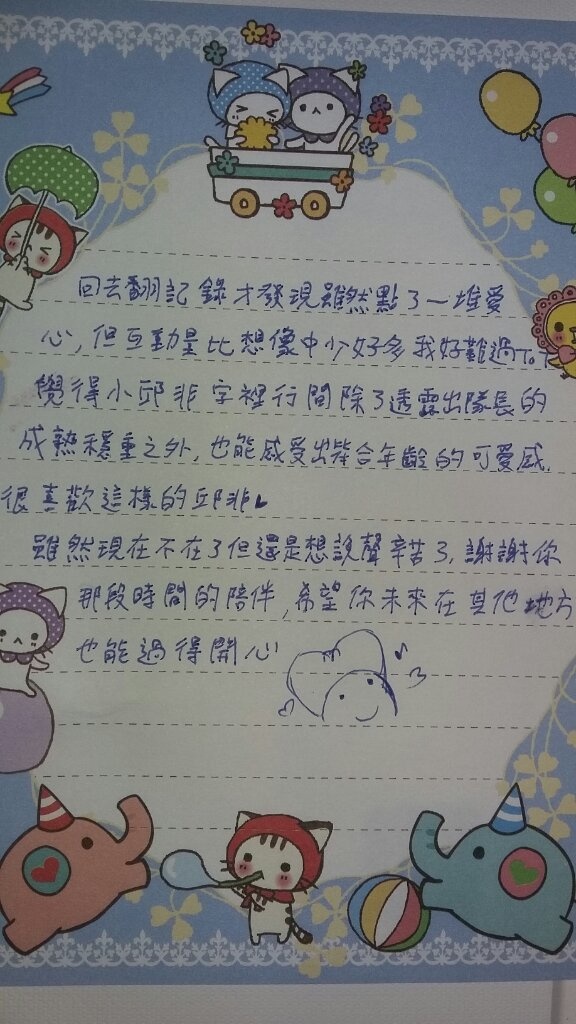 回去翻記錄才發現雖然點了一堆愛
心,但互動量比想像中少好多我好難過ToT
覺得小邱非字裡行間除了透露出隊長的
成熟穩重之外,也能感受出符合年齡的可愛感,
很喜歡這樣的邱非
雖然現在不在了但還是想說聲辛苦了,謝謝你
那段時間的陪伴,希望你未來在其他地方
也能過得開心